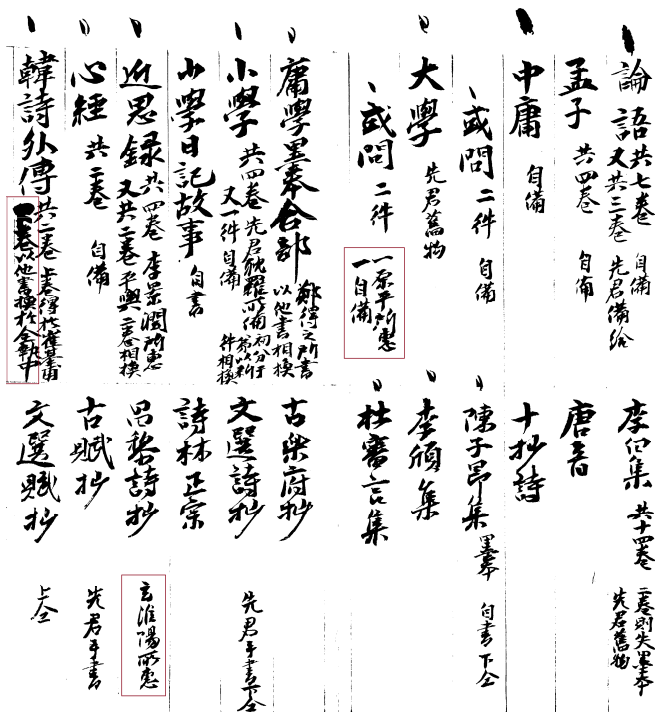 論語 共七卷 自備
又共三卷 先君備給
孟子 共四卷 自備
中庸 自備
或問 二件 自備
大學 先君舊物
或問 二件 一原平所惠
一自備
庸學墨本合部 鄭得之所書
以他書相換
小學 共四卷 先君
又一件自備
件相換
小學日記故事 自書
近思錄 共四卷 李景潤所惠
又共二卷 子興 二卷相換
心經 共二卷 自備
韓詩外傳 共二卷 上卷得於
卷以他書換於金執中
李白集 共十四卷 二卷則失墨本
先君舊物
唐音
十抄詩
陳子昂集 墨本 自書 下仝
李頎集
杜審言集
古樂府抄
文選詩抄 先君手書下仝
詩林正宗
昌黎詩抄 玄淮陽所惠
古賦抄 先君手書
文選賦抄 上仝